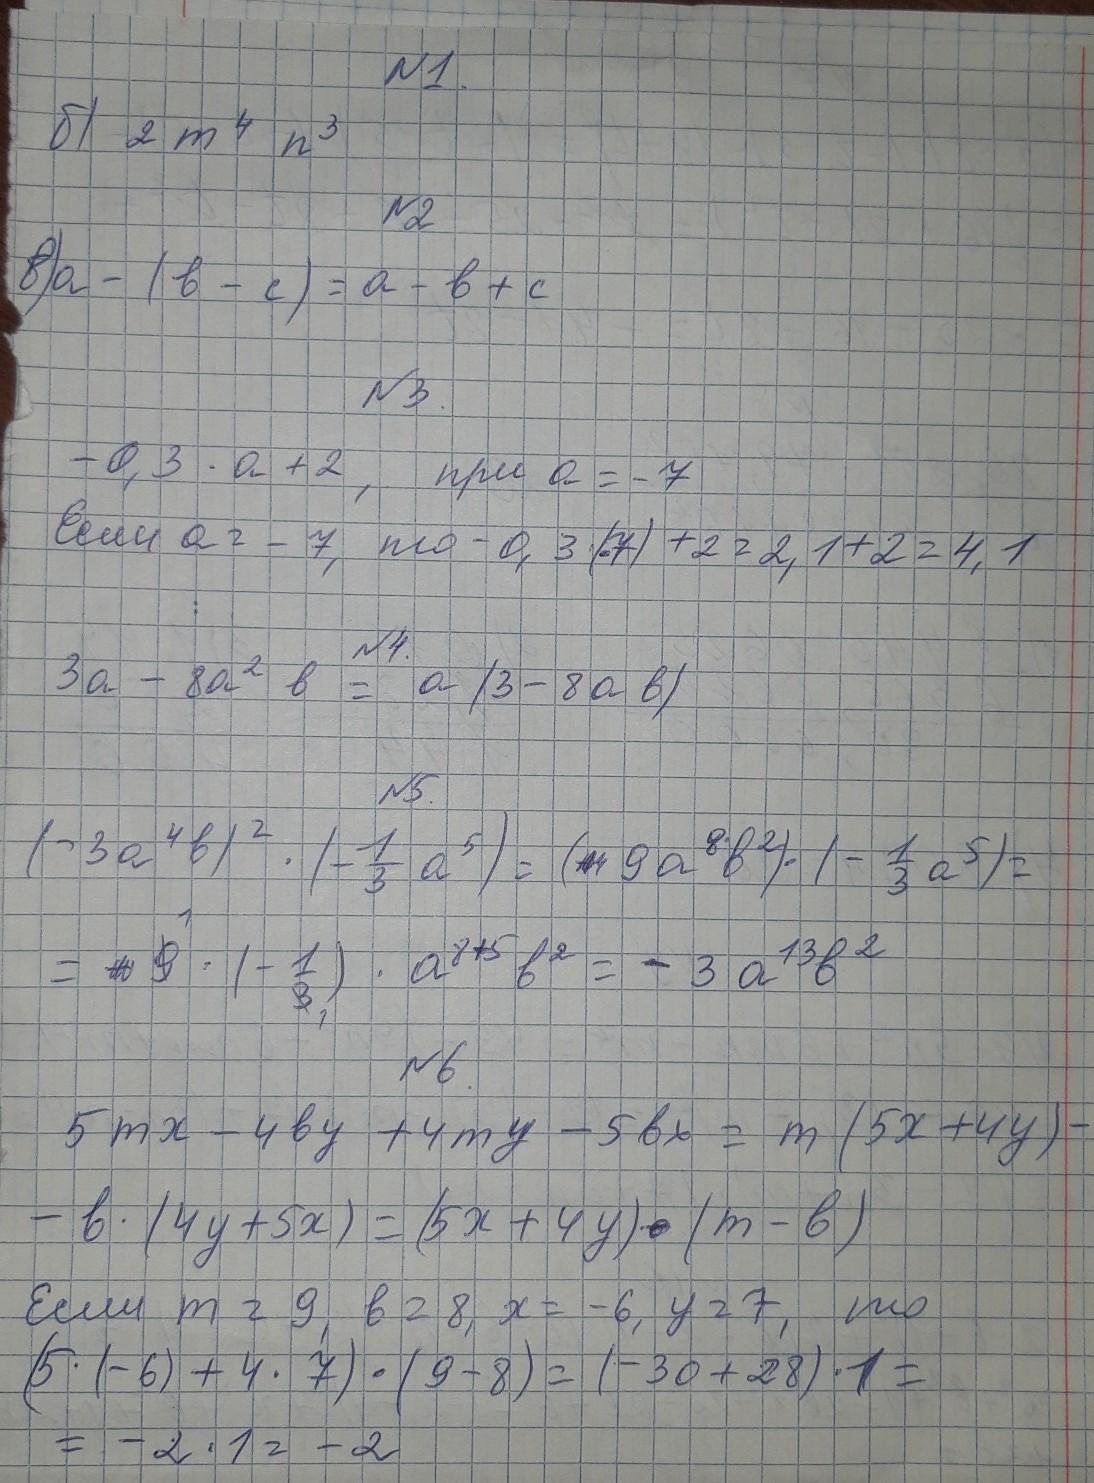 N1.
б) 2 m⁴ n³
N2
в) a - (b - c) = a - b + c
N3.
-0,3 · a + 2, при a = -7
Если a = -7, то -0,3·(-7) + 2 = 2,1 + 2 = 4,1
N4.
3a - 8a² b = a (3 - 8a b)
N5.
(-3a⁴b)² · (-1/3 a⁵) = (9a⁸b²) · (-1/3 a⁵) =
= 9 · (-1/3) · a⁸⁺⁵ b² = - 3 a¹³b²
N6.
5mx - 4by + 4my - 5bx = m (5x + 4y) -
- b · (4y + 5x) = (5x + 4y) · (m - b)
Если m = 9, b = 8, x = -6, y = 7, то
(5 · (-6) + 4 · 7) · (9 - 8) = (-30 + 28) · 1 =
= -2 · 1 = -2